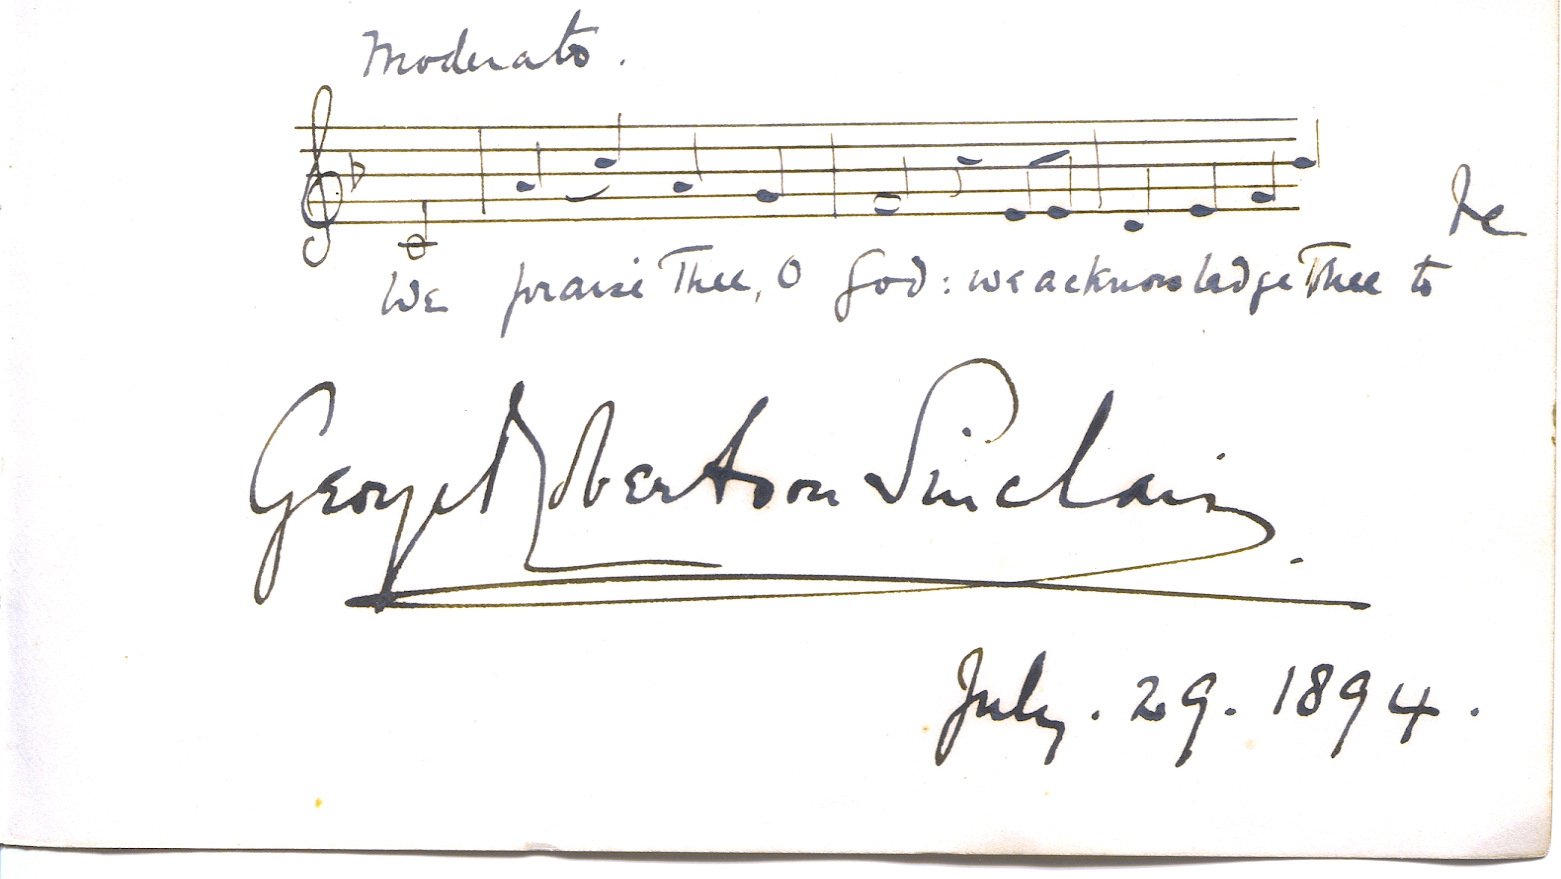 Moderato.
We praise Thee, O God: we acknowledge Thee to be
George Robertson Sinclair.
July. 29. 1894.